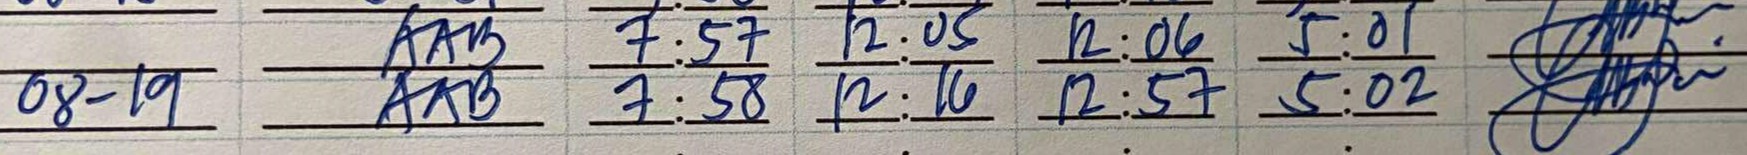 AAB 7:57 12:05 12:06 5:01
08-19 AAB 7:58 12:16 12:57 5:02